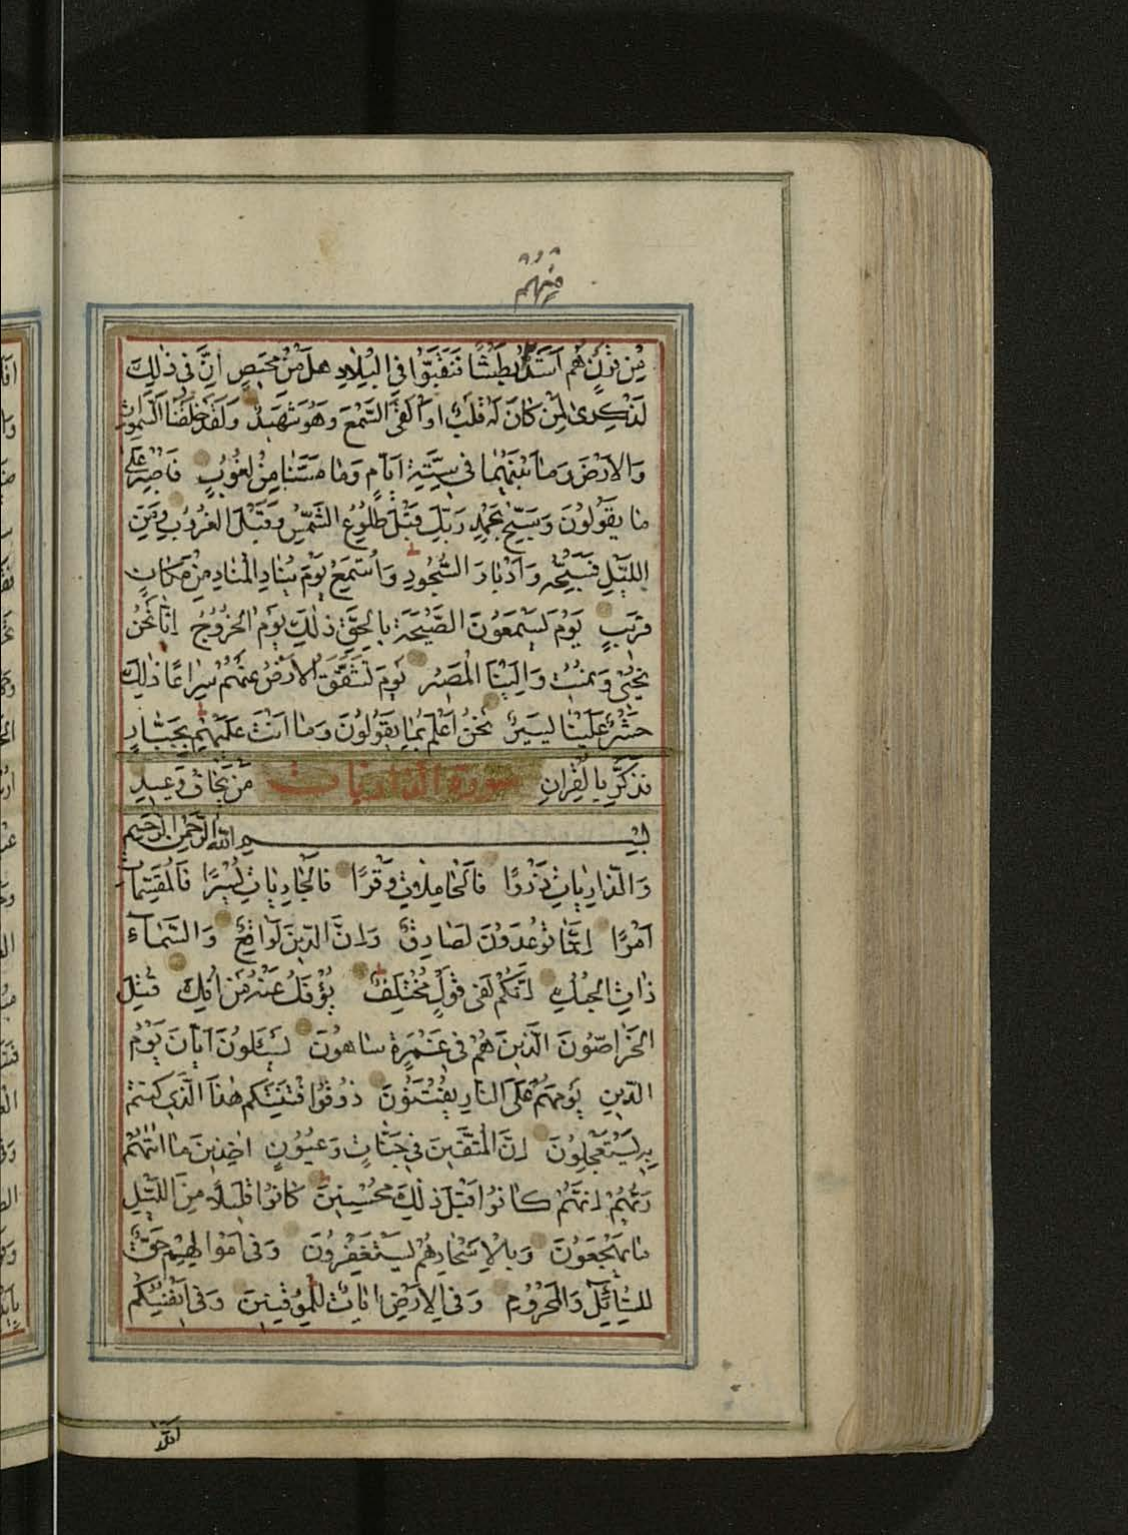 مِنْهُمْ
مِنْ قَرْنٍ هُمْ اَشَدُّ بَطْشًا فَنَقَّبُوا فِي الْبِلَادِ هَلْ مِنْ مَحِيصٍ اِنَّ فِي ذٰلِكَ
لَذِكْرٰى لِمَنْ كَانَ لَهُ قَلْبٌ اَوْ اَلْقَى السَّمْعَ وَهُوَ شَهِيدٌ وَلَقَدْ خَلَقْنَا السَّمٰوَاتِ
وَالْاَرْضَ وَمَا بَيْنَهُمَا فِي سِتَّةِ اَيَّامٍ وَمَا مَسَّنَا مِنْ لُغُوبٍ فَاصْبِرْ عَلٰى
مَا يَقُولُونَ وَسَبِّحْ بِحَمْدِ رَبِّكَ قَبْلَ طُلُوعِ الشَّمْسِ وَقَبْلَ الْغُرُوبِ وَمِنَ
اللَّيْلِ فَسَبِّحْهُ وَاَدْبَارَ السُّجُودِ وَاسْتَمِعْ يَوْمَ يُنَادِ الْمُنَادِ مِنْ مَكَانٍ
قَرِيبٍ يَوْمَ يَسْمَعُونَ الصَّيْحَةَ بِالْحَقِّ ذٰلِكَ يَوْمُ الْخُرُوجِ اِنَّا نَحْنُ
نُحْيِي وَنُمِيتُ وَاِلَيْنَا الْمَصِيرُ يَوْمَ تَشَقَّقُ الْاَرْضُ عَنْهُمْ سِرَاعًا ذٰلِكَ
حَشْرٌ عَلَيْنَا يَسِيرٌ نَحْنُ اَعْلَمُ بِمَا يَقُولُونَ وَمَا اَنْتَ عَلَيْهِمْ بِجَبَّارٍ
فَذَكِّرْ بِالْقُرْاٰنِ سورة الذاريات مَنْ يَخَافُ وَعِيدِ
بِسْمِ اللّٰهِ الرَّحْمٰنِ الرَّحِيمِ
وَالذَّارِيَاتِ ذَرْوًا فَالْحَامِلَاتِ وِقْرًا فَالْجَارِيَاتِ يُسْرًا فَالْمُقَسِّمَاتِ
اَمْرًا اِنَّمَا تُوعَدُونَ لَصَادِقٌ وَاِنَّ الدِّينَ لَوَاقِعٌ وَالسَّمَاءِ
ذَاتِ الْحُبُكِ اِنَّكُمْ لَفِي قَوْلٍ مُخْتَلِفٍ يُؤْفَكُ عَنْهُ مَنْ اُفِكَ قُتِلَ
الْخَرَّاصُونَ الَّذِينَ هُمْ فِي غَمْرَةٍ سَاهُونَ يَسْـَٔلُونَ اَيَّانَ يَوْمُ
الدِّينِ يَوْمَ هُمْ عَلَى النَّارِ يُفْتَنُونَ ذُوقُوا فِتْنَتَكُمْ هٰذَا الَّذِي كُنْتُمْ
بِهِ تَسْتَعْجِلُونَ اِنَّ الْمُتَّقِينَ فِي جَنَّاتٍ وَعُيُونٍ اٰخِذِينَ مَا اٰتٰيهُمْ
رَبُّهُمْ اِنَّهُمْ كَانُوا قَبْلَ ذٰلِكَ مُحْسِنِينَ كَانُوا قَلِيلًا مِنَ اللَّيْلِ
مَا يَهْجَعُونَ وَبِالْاَسْحَارِ هُمْ يَسْتَغْفِرُونَ وَفِي اَمْوَالِهِمْ حَقٌّ
لِلسَّائِلِ وَالْمَحْرُومِ وَفِي الْاَرْضِ اٰيَاتٌ لِلْمُوقِنِينَ وَفِي اَنْفُسِكُمْ